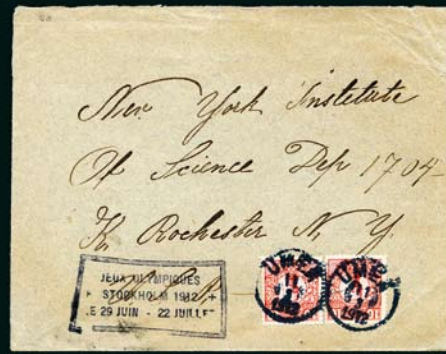 New York Institute
Of Science Dep 1704
K. Rochester N. Y.
JEUX OLYMPIQUES
STOCKHOLM 1912
LE 29 JUIN - 22 JUILLET
UMEÅ
1912
UMEÅ
1912